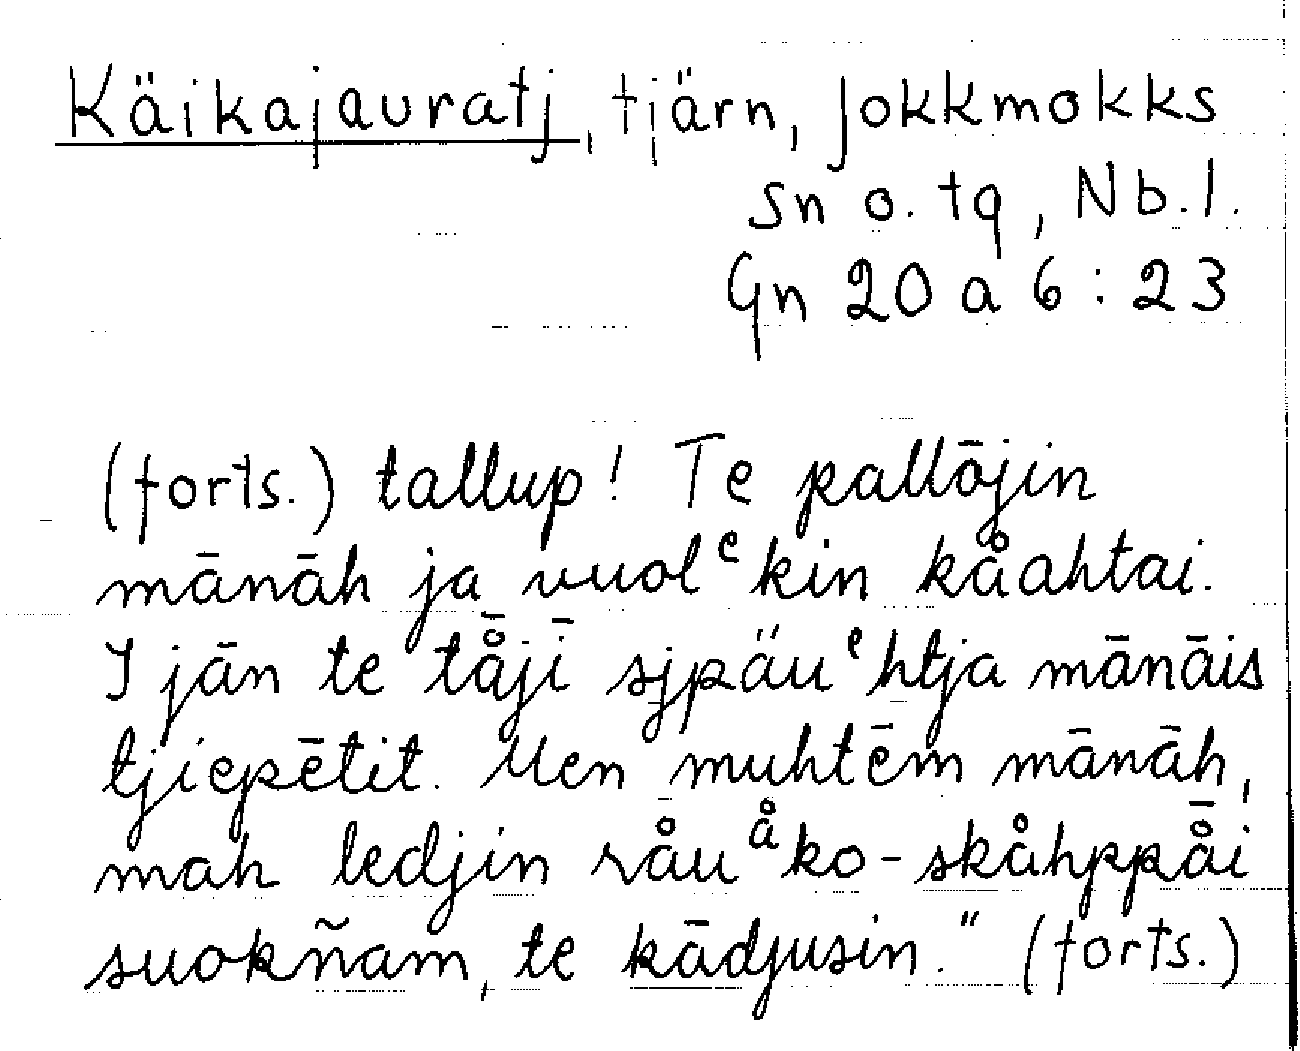 Käikajauratj, tjärn, Jokkmokks
sn o. tg, Nb.l.
Gn 20 a 6:23
(forts.) tallup! Te pallōjin
mānāh ja vuolᵉkin kåahtai.
Ijān te tå̄jī sjpäuᵉhtja mānāis
tjiepētit. Men muhtēm mānāh,
mah ledjin råuᵃ̊ko-skåhppå̄i
suokñam, te kādjusin." (forts.)